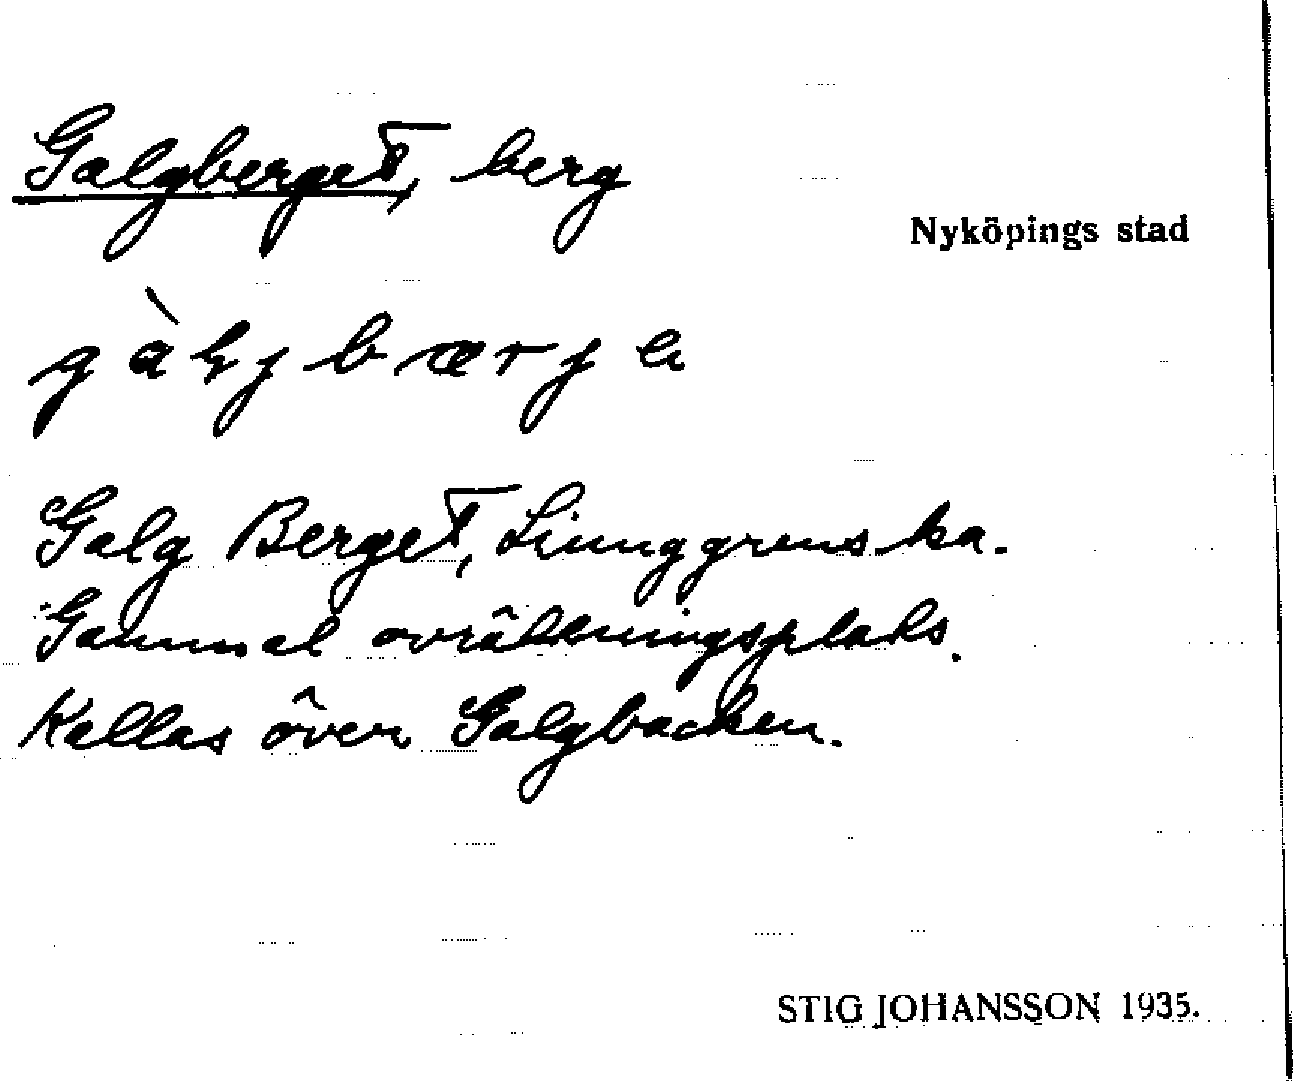 Galgberget, berg
Nyköpings stad
Galg Berget, Liunggrens ka.
Gammal avrättningsplats.
Kallas även Galgbacken.
STIG JOHANSSON 1935.